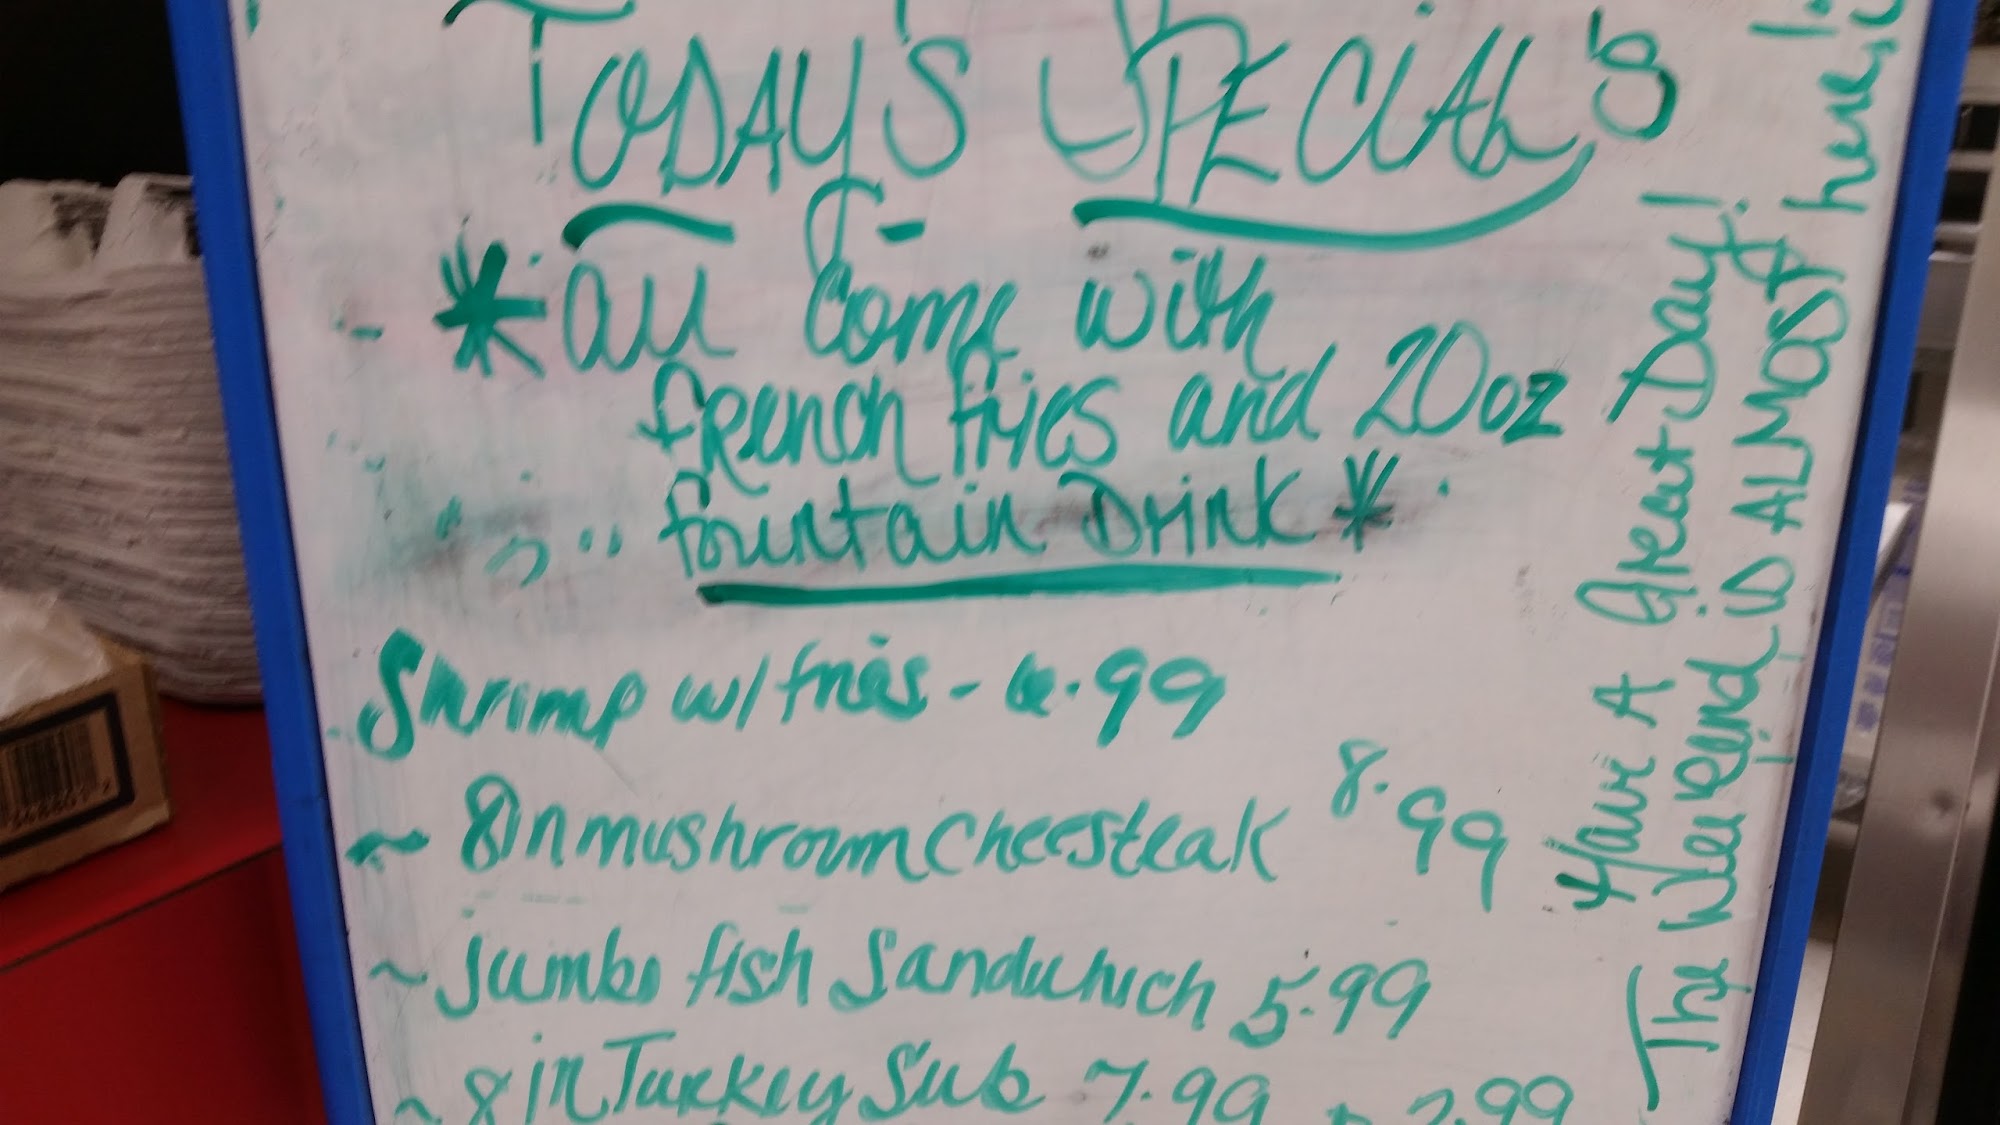 TODAY'S SPECIALS
* all come with
french fries and 20oz
fountain DRINK *
Shrimp w/ fries - 6.99
~ 8in mushroom cheesteak 8.99
~ jumbo fish Sandwhich 5.99
~ 8 in Turkey Sub 7.99
Have A Great Day!
The Weekend is ALMOST here